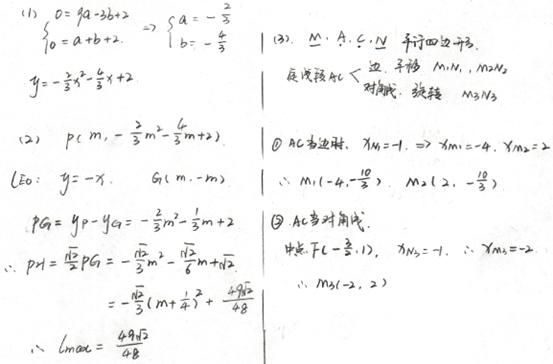 (1) { 0=9a-3b+2
0=a+b+2. ⇒ { a=-2/3
b=-4/3
y=-2/3x²-4/3x+2
(2) P(m, -2/3m²-4/3m+2)
LEO: y=-x. G(m,-m)
PG=yP-yG=-2/3m²-1/3m+2
∴ PH=√2/2PG=-√2/3m²-√2/6m+√2
=-√2/3(m+1/4)²+49√2/48
∴ lmax=49√2/48
(3). M.A.C.N 平行四边形.
AC < 边. 平移 M1N1, M2N2
对角线. 旋转 M3N3
① AC当边时. xN1=-1. ⇒ xM1=-4, xM2=2
∴ M1(-4,-10/3) M2(2,-10/3)
② AC当对角线.
中点F(-3/2,1), xN3=-1. ∴ xM3=-2
∴ M3(-2,2)